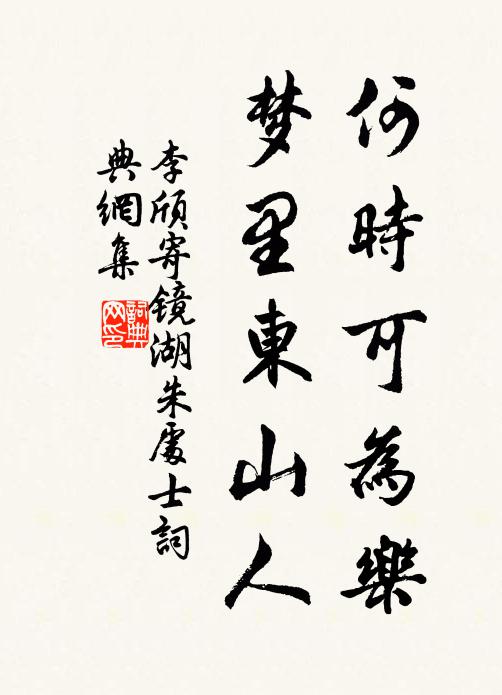 何時可為樂
梦里東山人
李頎寄镜湖朱處士詞
典網集
詞典网印